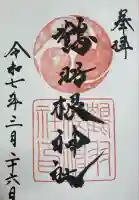 奉拝
鶴羽根神社
令和七年三月二十六日